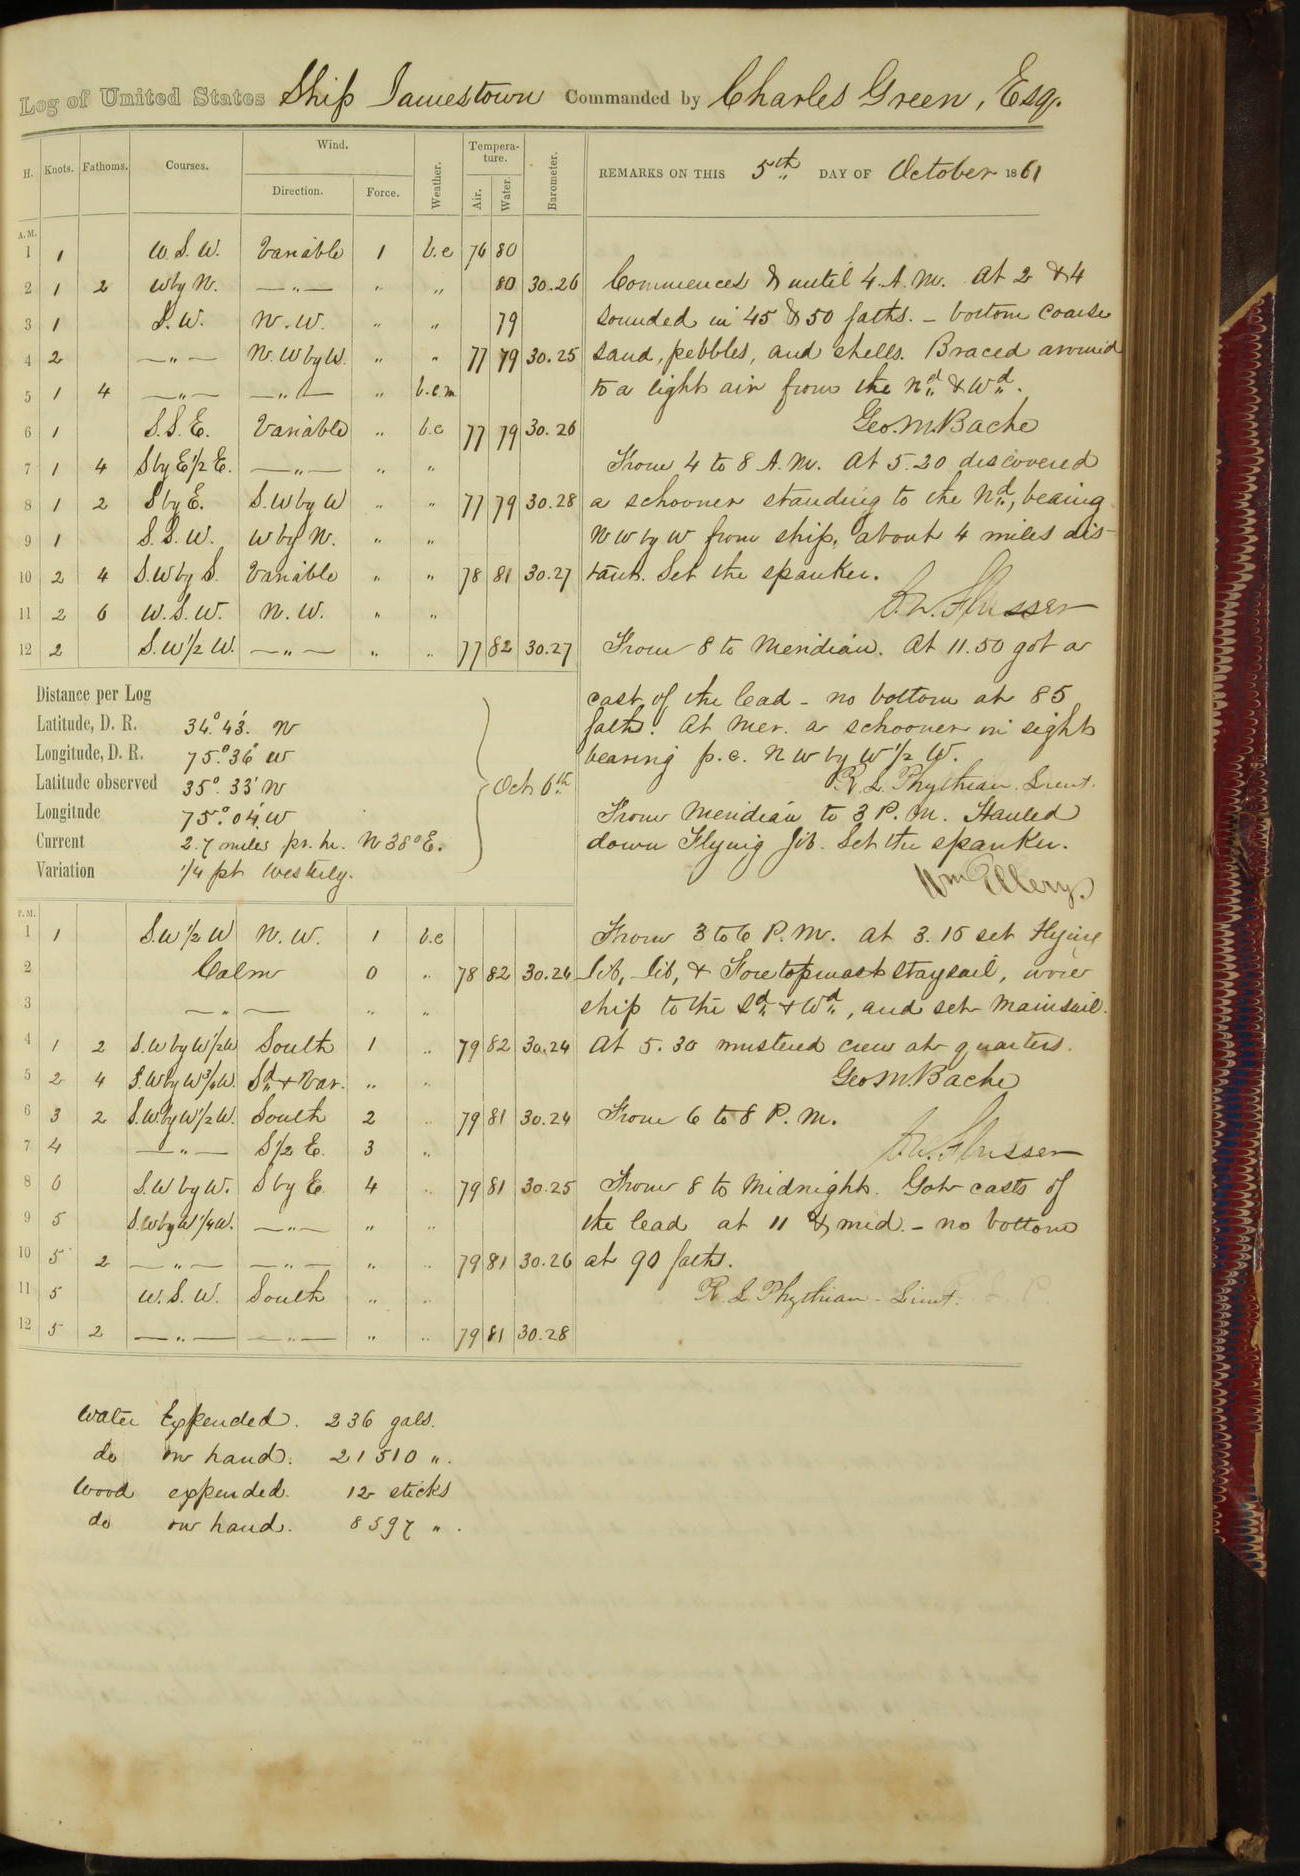 Log of United States Ship Jamestown Commanded by Charles Green, Esq.
H. Knots. Fathoms. Courses. Wind. Direction. Force. Weather. Temperature. Air. Water. Barometer. REMARKS ON THIS 5th DAY OF October 1861
A.M.
1 1 W.S.W. Variable 1 b.c 76 80
2 1 2 W by N. —"— " " 80 30.26 Commences & until 4 A.M. At 2 & 4
3 1 S.W. N.W. " " 79 sounded in 45 & 50 faths. – bottom coarse
4 2 —"— N.W by W. " " 77 79 30.25 sand, pebbles, and shells. Braced around
5 1 4 —"— —"— " b.c.m to a light air from the Nd & Wd.
6 1 S.S.E. Variable " b.c 77 79 30.26 Geo. M. Bache
7 1 4 S by E 1/2 E. —"— " " From 4 to 8 A.M. At 5.20 discovered
8 1 2 S by E. S.W by W " " 77 79 30.28 a schooner standing to the Nd, bearing
9 1 S.S.W. W by N. " " N W by W from ship, about 4 miles dis-
10 2 4 S.W by S. Variable " " 78 81 30.27 tant. Set the spanker.
11 2 6 W.S.W. N.W. " " C.W. Flusser
12 2 S.W 1/2 W. —"— " " 77 82 30.27 From 8 to Meridian. At 11.50 got a
Distance per Log cast of the lead – no bottom at 85
Latitude, D. R. 34° 43' N faths. At Mer. a schooner in sight
Longitude, D. R. 75° 36' W bearing p.c. N W by W 1/2 W.
Latitude observed 35° 33' N Oct 6th R. L. Phythian. Lieut.
Longitude 75° 04' W From Meridian to 3 P.M. Hauled
Current 2.7 miles pr. hr. N 38° E. down Flying Jib. Set the spanker.
Variation 1/4 pt Westerly. Wm Ellery.
P.M.
1 1 S.W 1/2 W N.W. 1 b.c From 3 to 6 P.M. At 3.15 set Flying
2 Calm 0 " 78 82 30.24 Jib, Jib, & Foretopmast staysail, wore
3 —"— " " ship to the Sd & Wd, and set Mainsail.
4 1 2 S.W by W 1/2 W South 1 " 79 82 30.24 At 5.30 mustered crew at quarters.
5 2 4 S.W by W 3/4 W. Sd & Var. " " Geo M Bache
6 3 2 S.W. by W 1/2 W. South 2 " 79 81 30.24 From 6 to 8 P.M.
7 4 —"— S 1/2 E. 3 " C.W. Flusser
8 6 S.W by W. S by E. 4 " 79 81 30.25 From 8 to Midnight. Got casts of
9 5 S.W by W 1/4 W. —"— " " the lead at 11 & mid. – no bottom
10 5 2 —"— —"— " " 79 81 30.26 at 90 faths.
11 5 W.S.W. South " " R L Phythian – Lieut.
12 5 2 —"— —"— " " 79 81 30.28
Water Expended. 236 gals.
do on hand. 21510 ".
Wood expended. 12 sticks
do on hand. 8597 ".